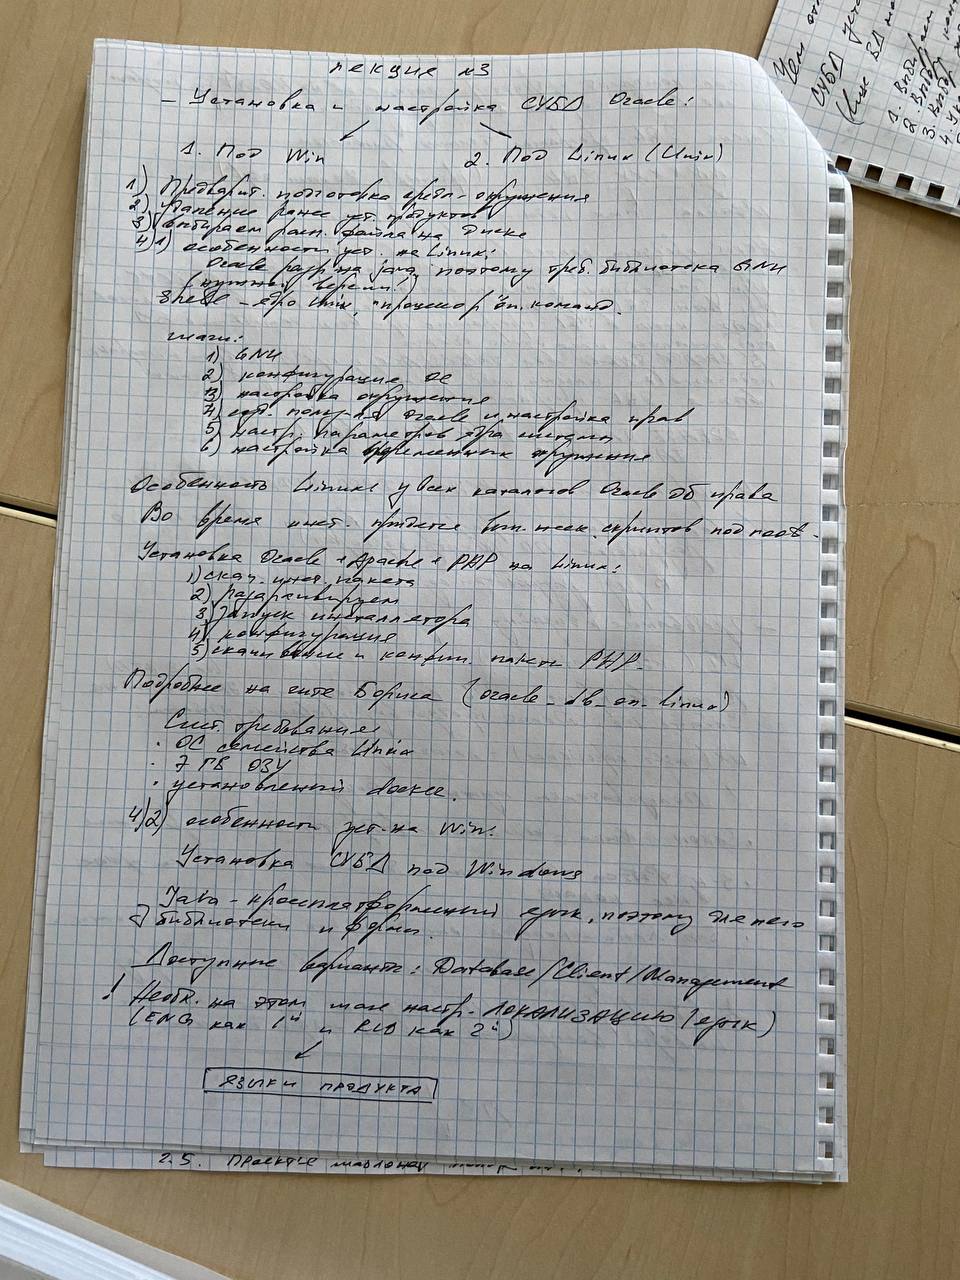 Лекция №3
– Установка и настройка СУБД Oracle:
1. Под Win
2. Под Linux (Unix)
1) Предварит. подготовка окружения
2) удаление ранее уст. продуктов
3) выбираем расп. файла на диске
4) 1) особенности уст. на Linux:
Oracle разр. на java, поэтому треб. библиотека GNU
(нужной версии!)
Shell – ядро Unix, "процессор" вп. команд.
шаги:
1) GNU
2) конфигурация ОС
3) настройка окружения
4) созд. польз-ля Oracle и настройка прав
5) настр. параметров ядра системы
6) настройка переменных окружения
Особенность Linux: у всех каталогов Oracle дб права
Во время инст. придется вып. неск. скриптов под root.
Установка Oracle + Apache + PHP на Linux:
1) скач. инст. пакета
2) разархивируем
3) Запуск инсталлятора
4) конфигурация
5) скачивание и конфиг. пакета PHP.
Подробнее на сайте Бориса (oracle_db_on_linux)
Сист. требования:
· ОС семейства Unix
· 7 ГБ ОЗУ
· установленный docker.
4) 2) особенности уст. на Win:
Установка СУБД под Windows
Java – кроссплатформенный язык, поэтому для него
∃ библиотеки и формы.
Доступные варианты: Database/Client/Management
! Необх. на этом шаге настр. ЛОКАЛИЗАЦИЮ (язык)
(ENG как 1й и RUS как 2й)
ЯЗЫКИ ПРОДУКТА
2.5. Простые
СУБД
1. Выбираем
2. Выбор
3. Выбор
4.